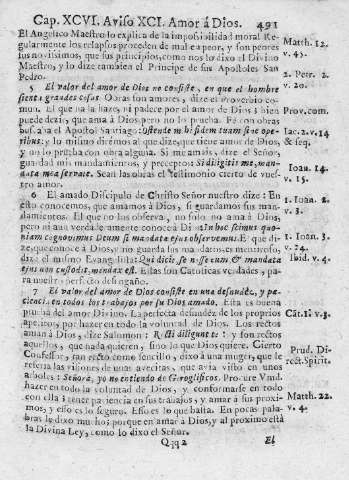 Cap. XCVI. Aviso XCI. Amor á Dios. 491
El Angelico Maestro lo explica de la imposibilidad moral. Re-
gularmente los relapsos proceden de mal en peor, y son peores
sus novisimos, que sus principios, como nos lo dixo el Divino
Maestro, y lo dize tambien el Principe de sus Apostoles San
Pedro.
5 El valor del amor de Dios no consiste, en que el hombre
sienta grandes cosas. Obras son amores, dize el proverbio co-
mun. El que na la haze, ni padece por el amor de Dios; bien
puede dezir, que ama á Dios, pero no lo prueba. Fé con obras
buscaba el Apostol Santiago: Ostende mihi fidem tuam sine ope-
ribus; y lo mismo dirémos al que dize que tiene amor de Dios,
y no lo prueba con obra alguna. Si me amais, dize el Señor,
guardad mis mandamientos, y preceptos: Si diligitis me, man-
data mea servate. Sean las obras el testimonio cierto de vues-
tro amor.
6 El amado Discipulo de Christo Señor nuestro dize: En
esto conocemos, que amamos á Dios, si guardamos sus man-
damientos. El que no las observa, no solo no ama á Dios,
pero ni aun verdaderamente conoce á Dios: In hoc scimus quo-
niam cognovimus Deum si mandata ejus observemus. El que di-
ze, que conoce á Dios, y no guarda los mandatos es mentiroso,
dize el mismo Evangelista: Qui dicit se nosse eum & mandata
ejus non custodit, mendax est. Estas son Catolicas verdades, pa-
ra nuestro perfecto desengaño.
7 El valor del amor de Dios consiste en una desnudez, y pa-
ciencia en todos los trabajos por su Dios amado. Esta es buena
prueba del amor Divino. La perfecta desnudez de los proprios
apetitos, por hazer en todo la voluntad de Dios. Los rectos
aman á Dios, dize Salomon: Recti diligunt te: y son rectos
aquellos, que nada quieren, sino lo que Dios quiere. Cierto
Confessor, tan recto como sencillo, dixo á una muger, que le
referia las visiones de unas avecitas, que avia visto en unos
arboles: Señora, yo no entiendo de Geroglificos. Procure Vmd.
hazer en todo la voluntad de Dios, y conformarse en todo
con ella; tener paciencia en sus trabajos, y amar á sus proxi-
mos, y esso es lo seguro. Esso es lo que basta. En pocas pala-
bras le dixo mucho; porque en amar á Dios, y al proximo está
la Divina Ley, como lo dixo el Señor.
Qqq 2 El
Matth. 12.
v. 45.
2. Petr. 2.
v. 20.
Prov. com.
Iac. 2. v. 14
& seq.
Ioan. 14.
v. 15.
1. Ioan. 2.
v. 3.
1. Ioan. 3.
v. 24.
Ibid. v. 4.
Cát. 1. v. 3.
Prud. Di-
rect. Spirit.
Matth. 22.
v. 4.